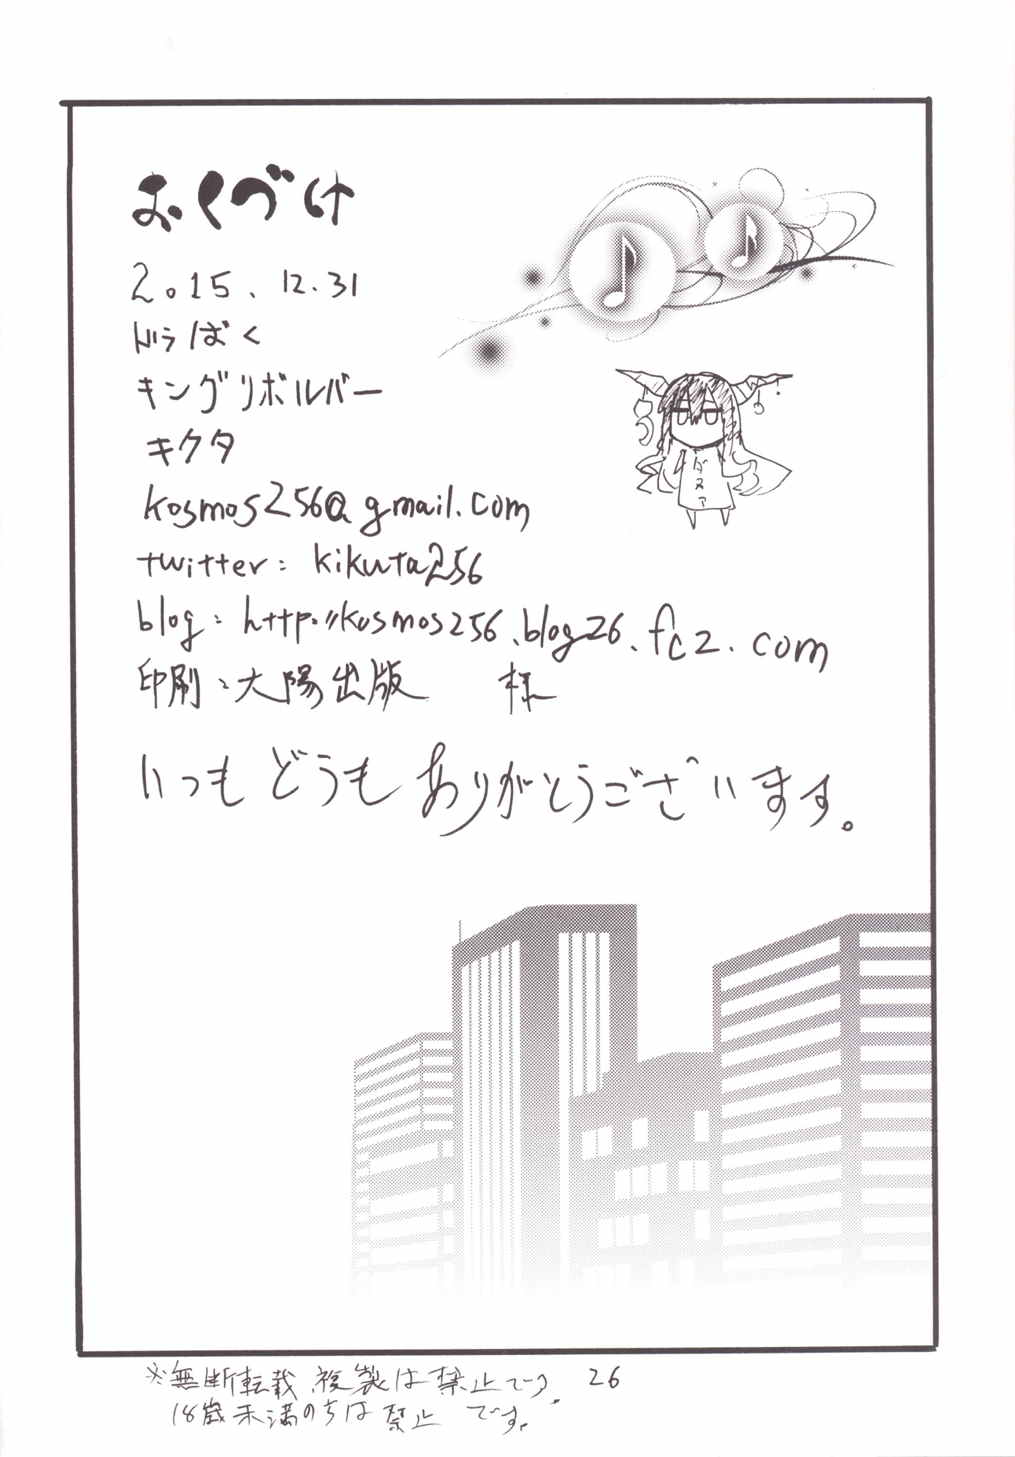 おくづけ
2015.12.31
ドラばく
キングリボルバー
キクタ
kosmos256@gmail.com
twitter: kikuta256
blog: http://kosmos256.blog26.fc2.com
印刷:大陽出版 様
いつもどうもありがとうございます。
※無断転載、複製は禁止です。 26
18歳未満の方は禁止です。